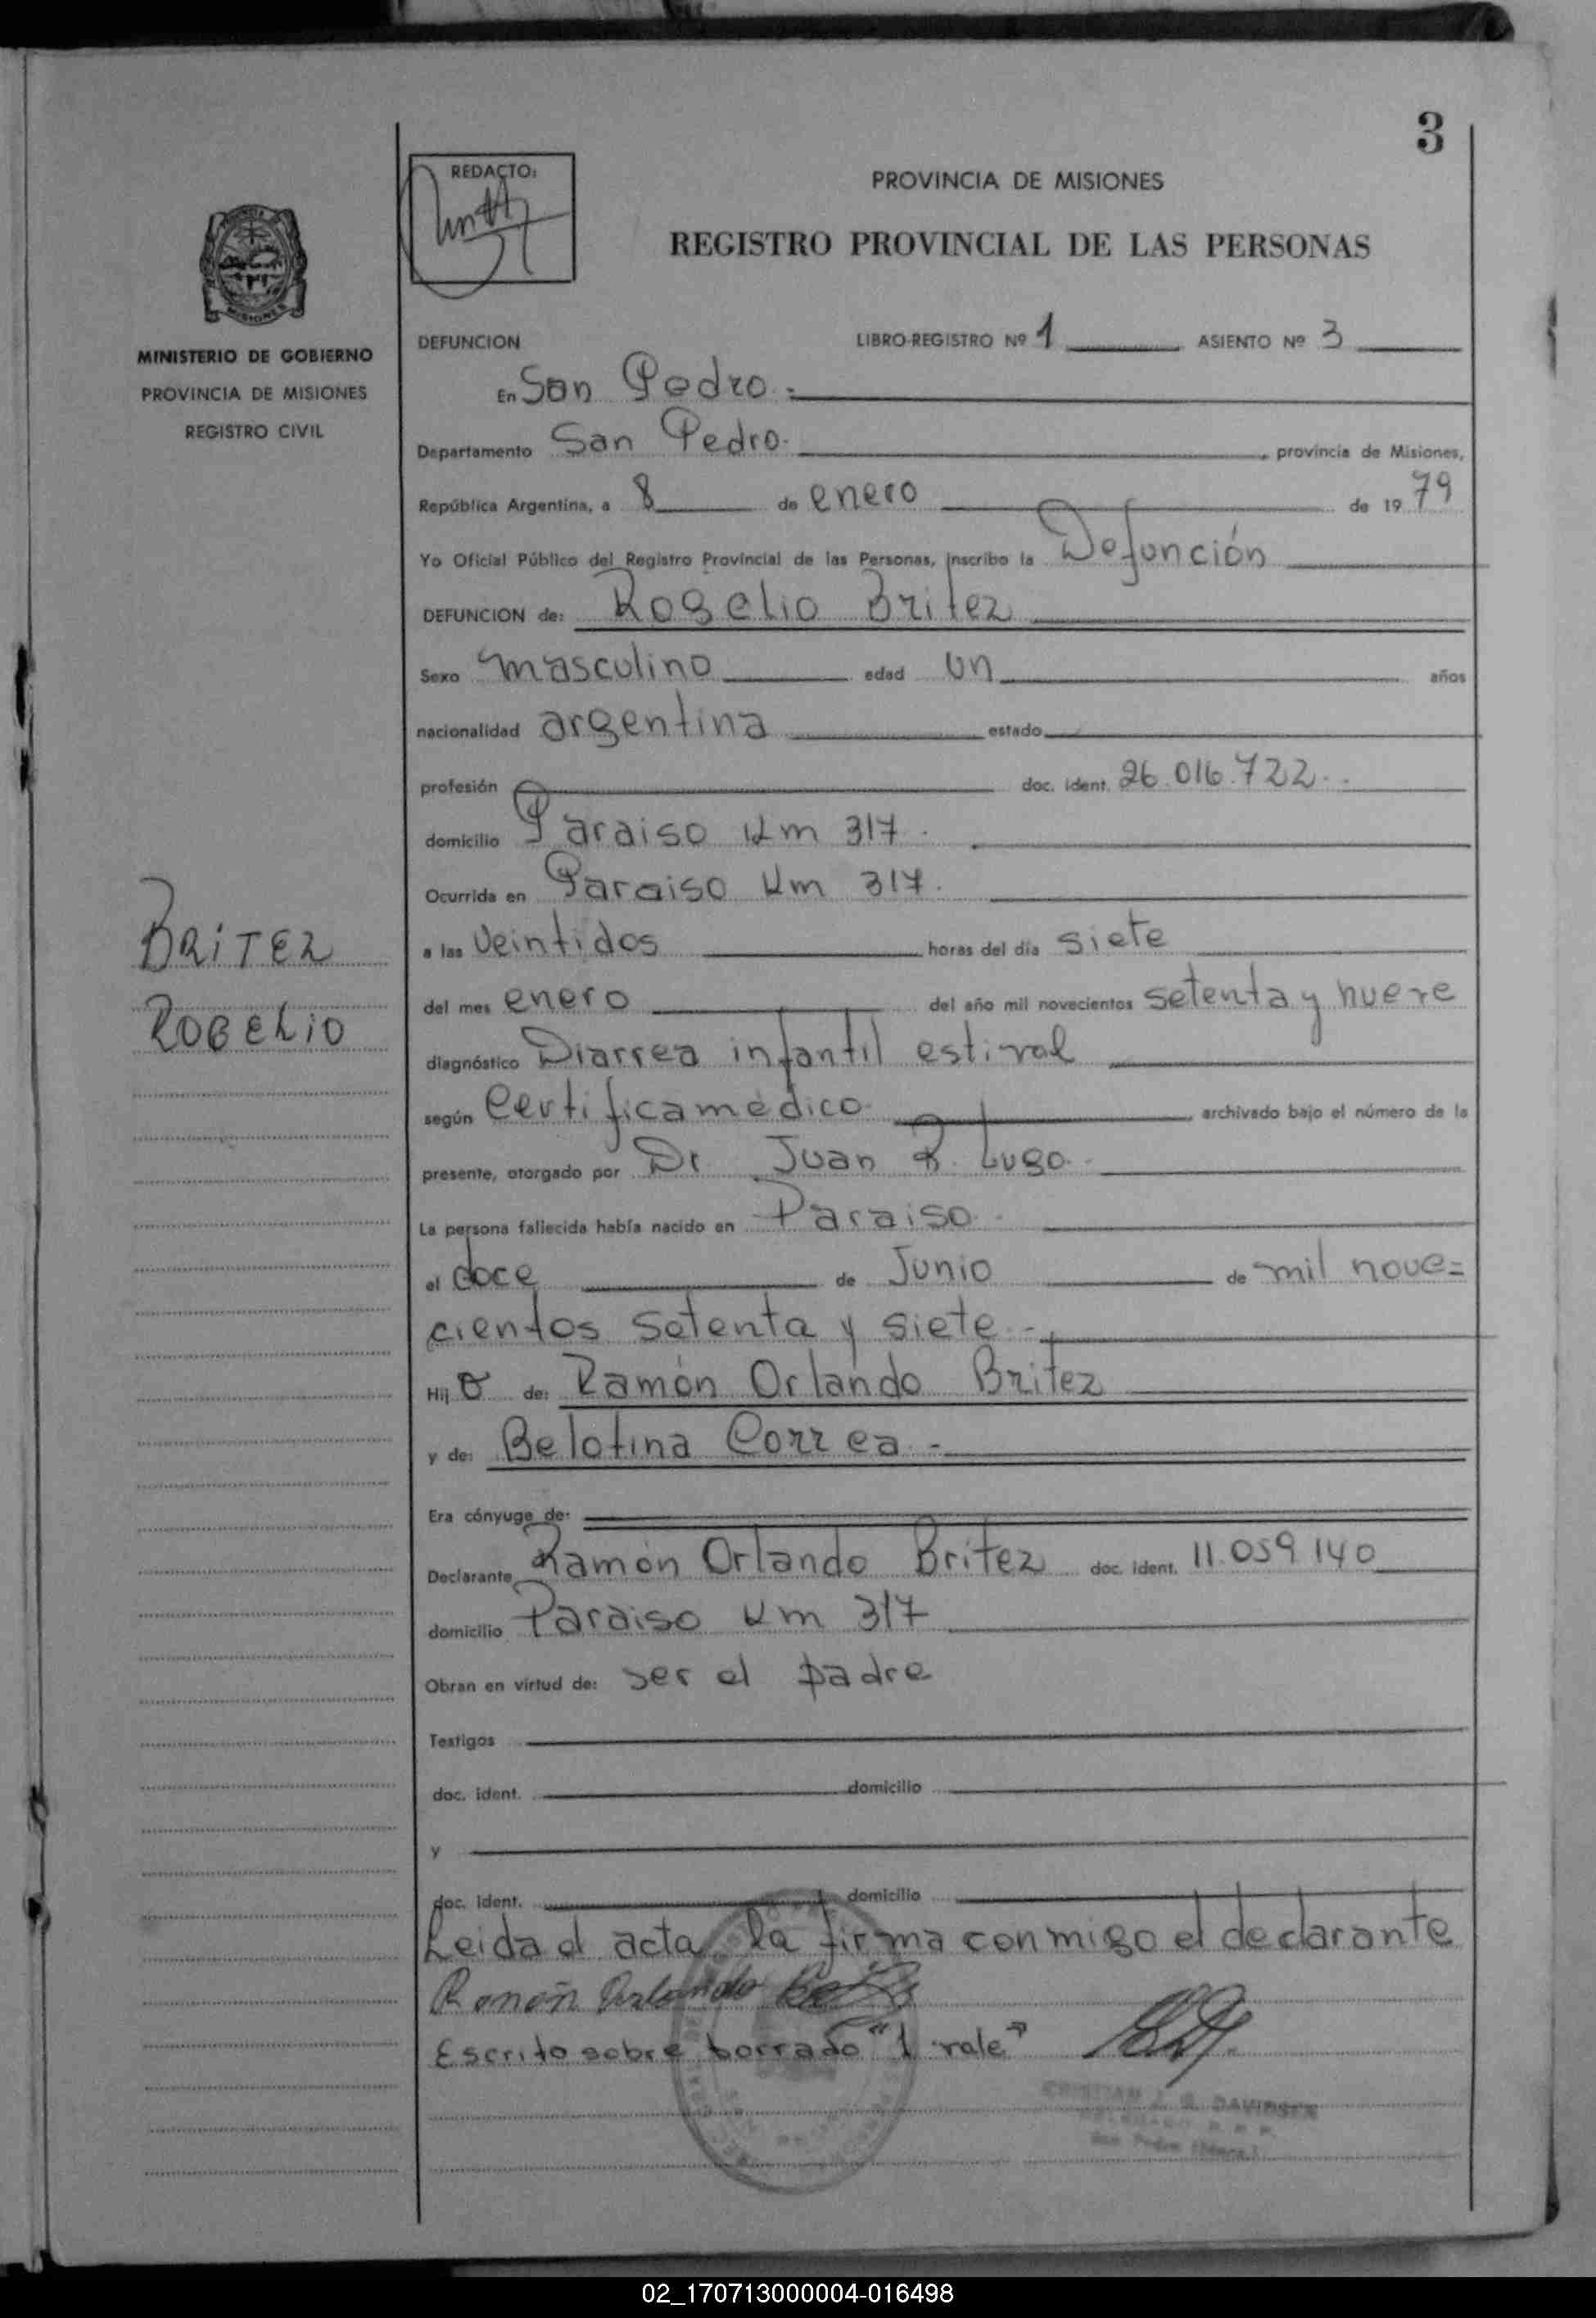 3
REDACTO:
PROVINCIA DE MISIONES
REGISTRO PROVINCIAL DE LAS PERSONAS
MINISTERIO DE GOBIERNO
PROVINCIA DE MISIONES
REGISTRO CIVIL
DEFUNCION LIBRO-REGISTRO Nº 1 ASIENTO Nº 3
En San Pedro.-
Departamento San Pedro.- , provincia de Misiones,
República Argentina, a 8 de enero de 19 79
Yo Oficial Público del Registro Provincial de las Personas, inscribo la Defunción
DEFUNCION de: Rogelio Britez
Sexo masculino edad un años
nacionalidad argentina estado
profesión doc. ident. 26.016.722.-
domicilio Paraiso Km 317.
Ocurrida en Paraiso Km 317.
BRITEZ
ROGELIO
a las veintidos horas del día siete
del mes enero del año mil novecientos setenta y nueve
diagnóstico Diarrea infantil estival
según Certificamédico , archivado bajo el número de la
presente, otorgado por Dr Juan R. Lugo.-
La persona fallecida había nacido en Paraiso.
el doce de Junio de mil nove=
cientos setenta y siete.-
Hij o de: Ramón Orlando Britez
y de: Belotina Correa.-
Era cónyuge de:
Declarante Ramón Orlando Britez doc. ident. 11.059.140
domicilio Paraiso Km 317
Obran en virtud de: ser el padre
Testigos
doc. ident. domicilio
y
doc. ident. domicilio
Leida el acta, la firma conmigo el declarante
Ramón Orlando
Escrito sobre borrado "1 vale"
CRISTIAN J. G. DAVIDSEN
San Pedro (Mnes.)
02_170713000004-016498